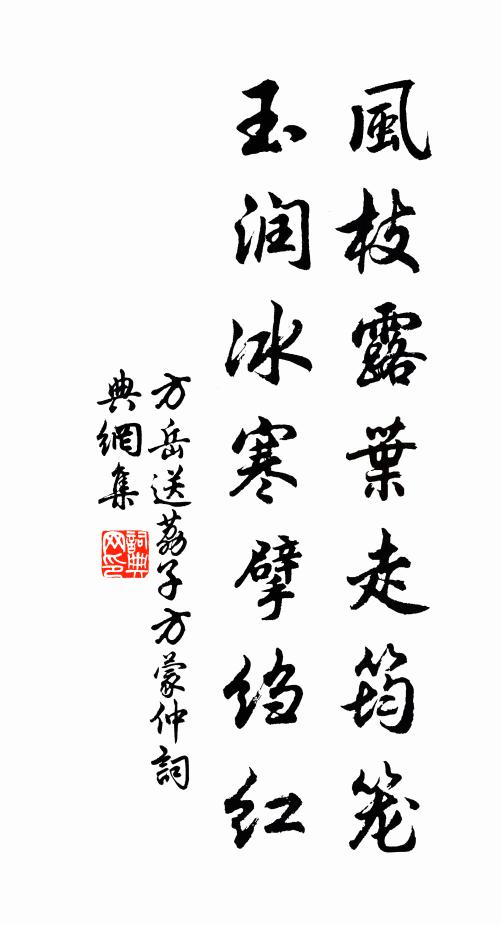 風枝露葉走筠笼
玉润冰寒擘绉红
方岳送荔子方蒙仲詞
典網集
詞典网印